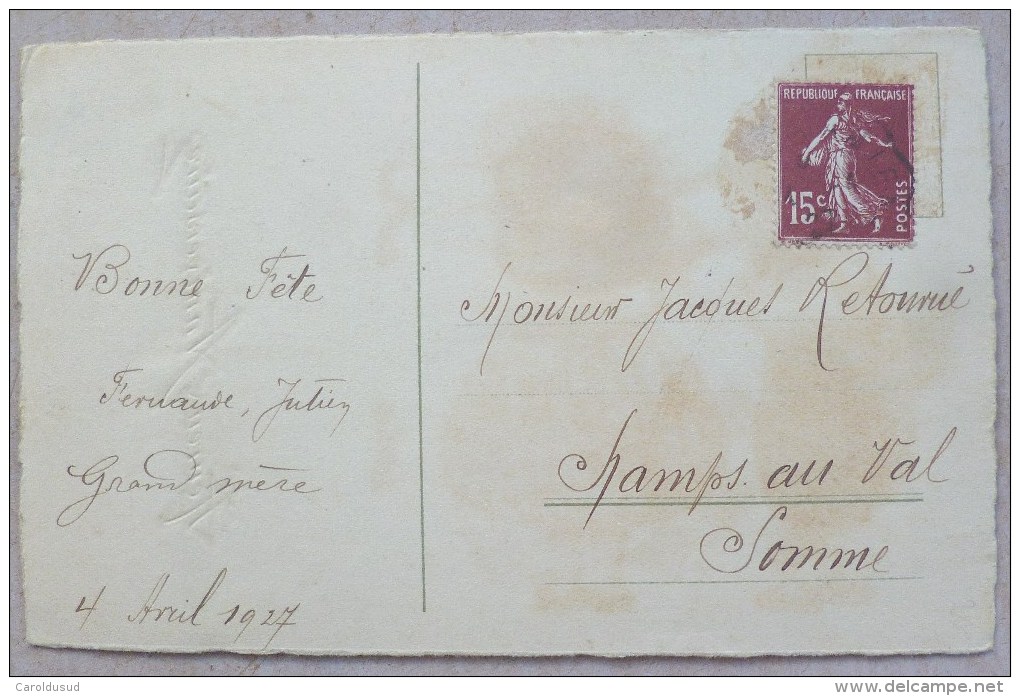 Bonne Fête
Fernande, Julien
Grand mère
4 Avril 1927
REPUBLIQUE FRANÇAISE
15c
POSTES
Monsieur Jacques Retourné
Champs. au Val
Somme
Caroldusud
www.delcampe.net